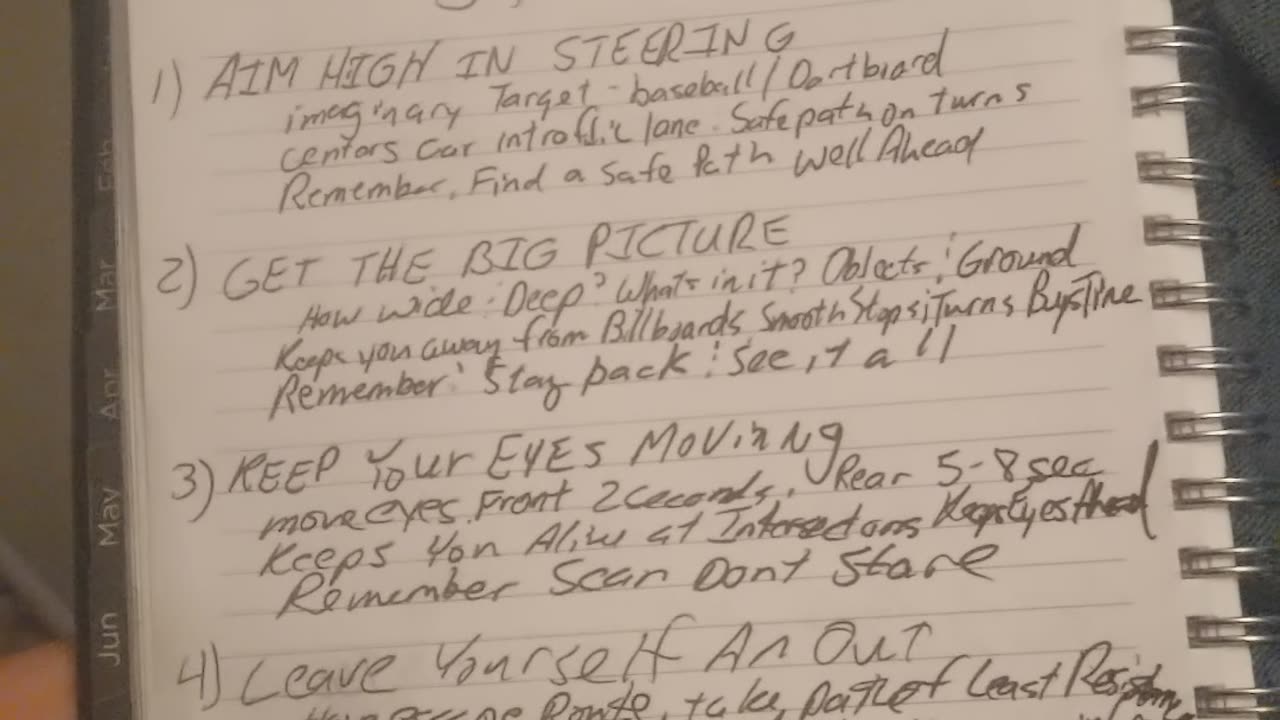 1) AIM HIGH IN STEERING
imaginary Target - baseball / Dartboard
centers car in traffic lane. Safe path on turns
Remember, Find a safe Path well Ahead
2) GET THE BIG PICTURE
How wide : Deep? What's in it? Objects : Ground
Keeps you away from Billboards Smooth Stops : Turns Buys Time
Remember : Stay back : see it all
3) KEEP YOUR EYES MOVING
move eyes. Front 2 ceconds, Rear 5-8 sec
Keeps you Alive at Keeps Eyes Ahead
Remember Scan Dont Stare
4) Leave Yourself An OUT
Route, take path of Least
Feb
Mar
Apr
May
Jun